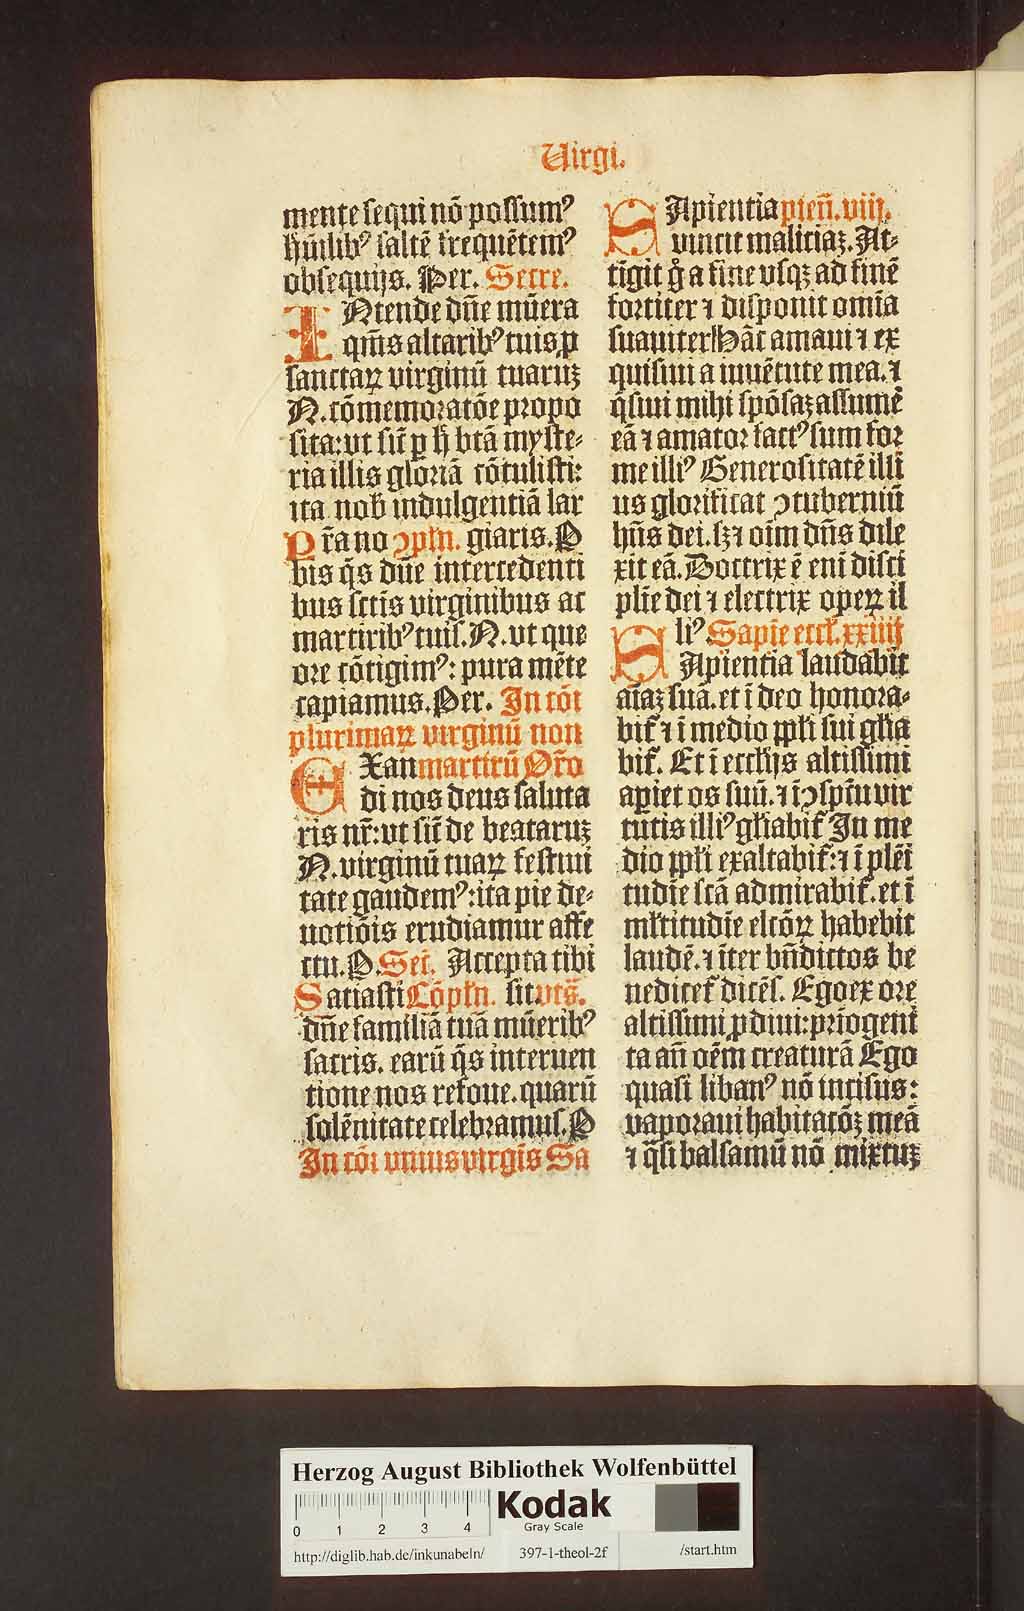 Uirgi.
mente sequi nō possum⁹
hūilib⁹ saltē frequētem⁹
obsequijs. Per. Secre.
INtende dn̄e mūera
qm̄s altarib⁹ tuis ꝓ
sanctaꝝ virginū tuaruꝫ
N. cōmemoratōe propo
sita: vt sic̄ ꝑ h̄ btā myste-
ria illis gloriā cōtulisti:
ita nob̄ indulgentiā lar
giaris. P
Pr̄a no ꝯpln̄.
bis q̄s dn̄e intercedenti
bus sctīs virginibus ac
martirib⁹ tuis. N. vt que
ore cōtigim⁹: pura mēte
capiamus. Per. In cōi
plurimaꝝ virginū non
martirū Or̄o
EXau
di nos deus saluta
ris nr̄: vt sic̄ de beataruꝫ
N. virginū tuaꝝ festiui
tate gaudem⁹: ita pie de-
uotiōis erudiamur affe
ctu. P. Sec̄. Accepta tibi
sit vts̄.
Satiasti Cōpln̄.
dn̄e familiā tuā mūerib⁹
sacris. earū q̄s interuen
tione nos refoue. quarū
solēnitate celebramus. P
In cōi vnius virgīs Sa
pien̄. viij.
SApientia
vincit maliciaꝫ. At-
tigit g̊ a fine vsqꝫ ad finē
fortiter ⁊ disponit omīa
suauiter Hāc amaui ⁊ ex
quisiui a iuuētute mea. ⁊
q̄siui mihi spōsaꝫ assumē
eā ⁊ amator fact⁹ sum for
me illi⁹ Generositatē illi
us glorificat ꝯtuberniū
hn̄s dei. sꝫ ⁊ oim̄ dn̄s dile
xit eā. Doctrix ē eni disci
plīe dei ⁊ electrix opeꝝ il
li⁹. Sapīe eccl̄. xxiiij
SApientia laudabit
aīaꝫ suā. et ī deo honora-
bit̄ ⁊ ī medio ppl̄i sui gl̄ia
bit̄. Et ī eccl̄ijs altissimi
apiet os suū. ⁊ ī ꝯsptū vir
tutis illi⁹ gl̄iabit̄ In me
dio ppl̄i exaltabit̄: ⁊ ī plēi
tudīe sctā admirabit̄. et ī
ml̄titudīe elcōꝝ habebit
laudē. ⁊ īter bn̄dictos be
nedicet̄ dicēs. Ego ex ore
altissimi ꝓdiui: prīogeni
ta an̄ oēm creaturā Ego
quasi liban⁹ nō incisus:
vaporaui habitatōꝫ meā
⁊ q̄si balsamū nō mixtuꝫ
Herzog August Bibliothek Wolfenbüttel
0 1 2 3 4
Kodak
Gray Scale
http://diglib.hab.de/inkunabeln/ 397-1-theol-2f /start.htm